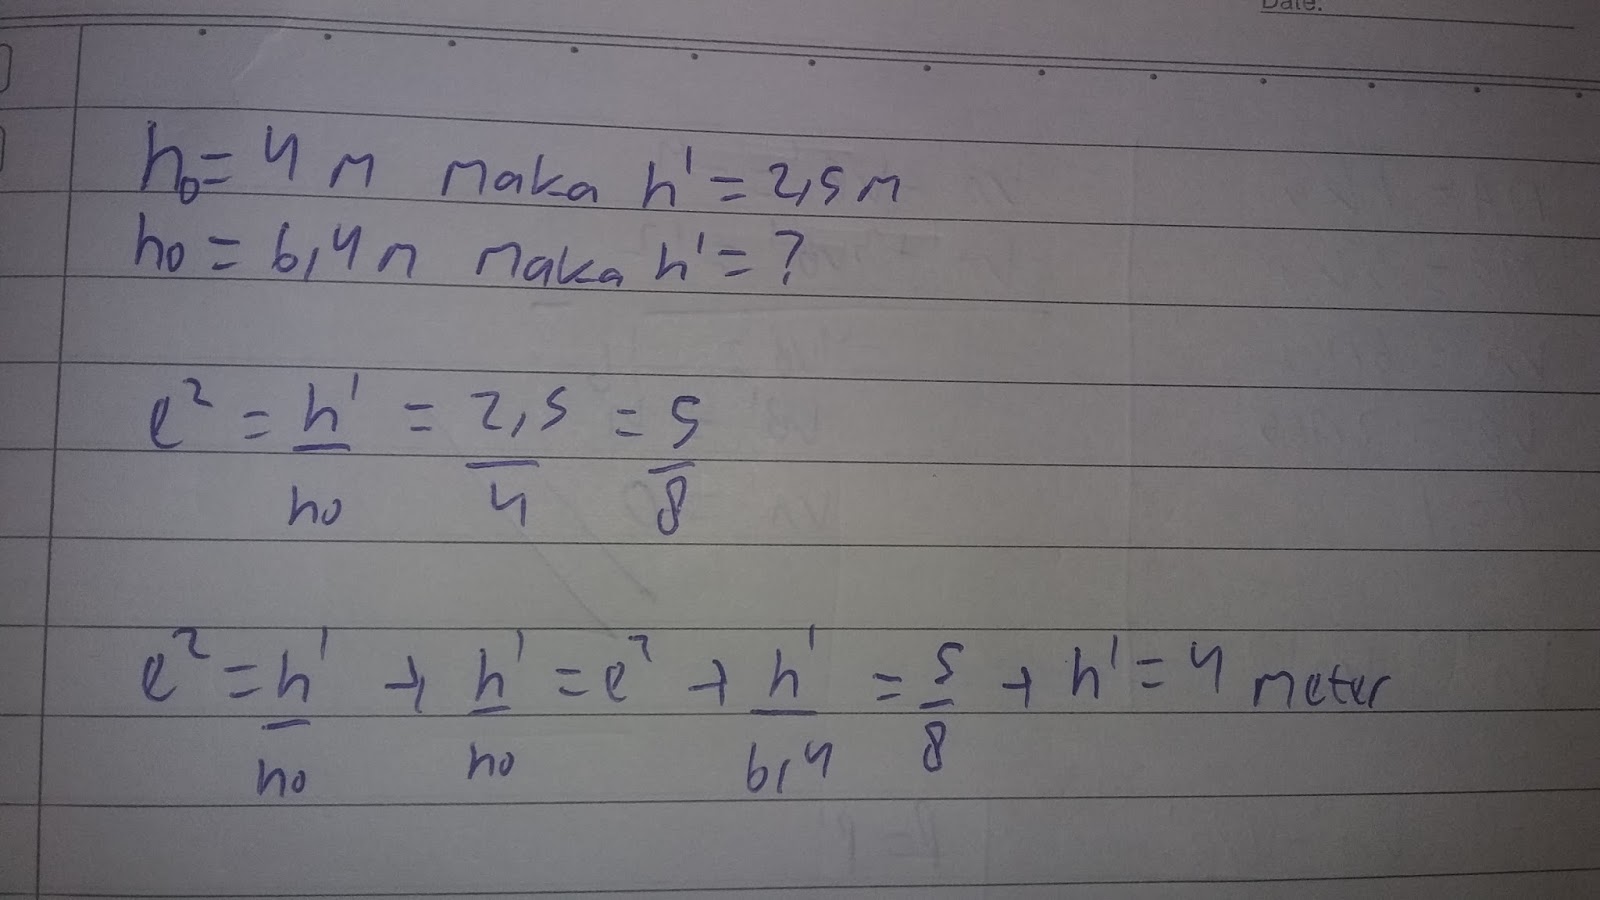 Date:
h₀ = 4 m maka h' = 2,5 m
h₀ = 6,4 m maka h' = ?
e² = h'/h₀ = 2,5/4 = 5/8
e² = h'/h₀ → h'/h₀ = e² → h'/6,4 = 5/8 → h' = 4 meter